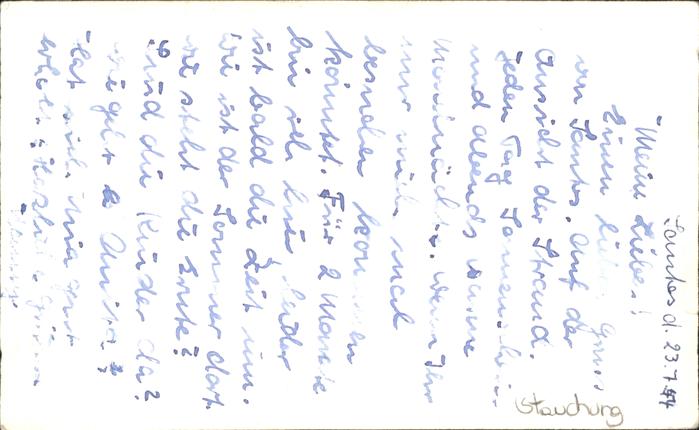 Santos d. 23.7.54
Meine Lieben!
Einen lieben Gruss
von Santos. Auf der
Ansicht der Strand.
Jeden Tag Sonnenschein
und abends warme
wenn Ihr
mich mal
besuchen kommen
könntet. Für 2 Monate
bin ich hier leider
ist bald die Zeit um.
Wie ist der Sommer dort
wie steht die Ernte?
Sind die Kinder da?
wie geht es Anita?
Hat sich gut
erholt. Herzliche Grüsse
Stauchung